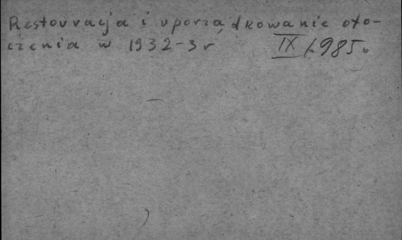 Restouracja i uporządkowanie oto-
czenia w 1932-3 r IX/985.